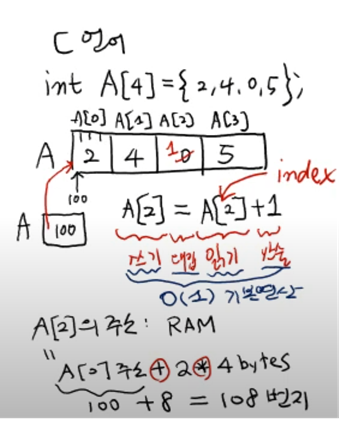 C 언어
int A[4]={2,4,0,5};
A[0] A[1] A[2] A[3]
A 2 4 0 1 5
index
100
A 100
A[2] = A[2]+1
쓰기 대입 읽기 산술
O(1) 기본연산
A[2]의 주소: RAM
"
A[0]주소 + 2 * 4 bytes
100 + 8 = 108 번지